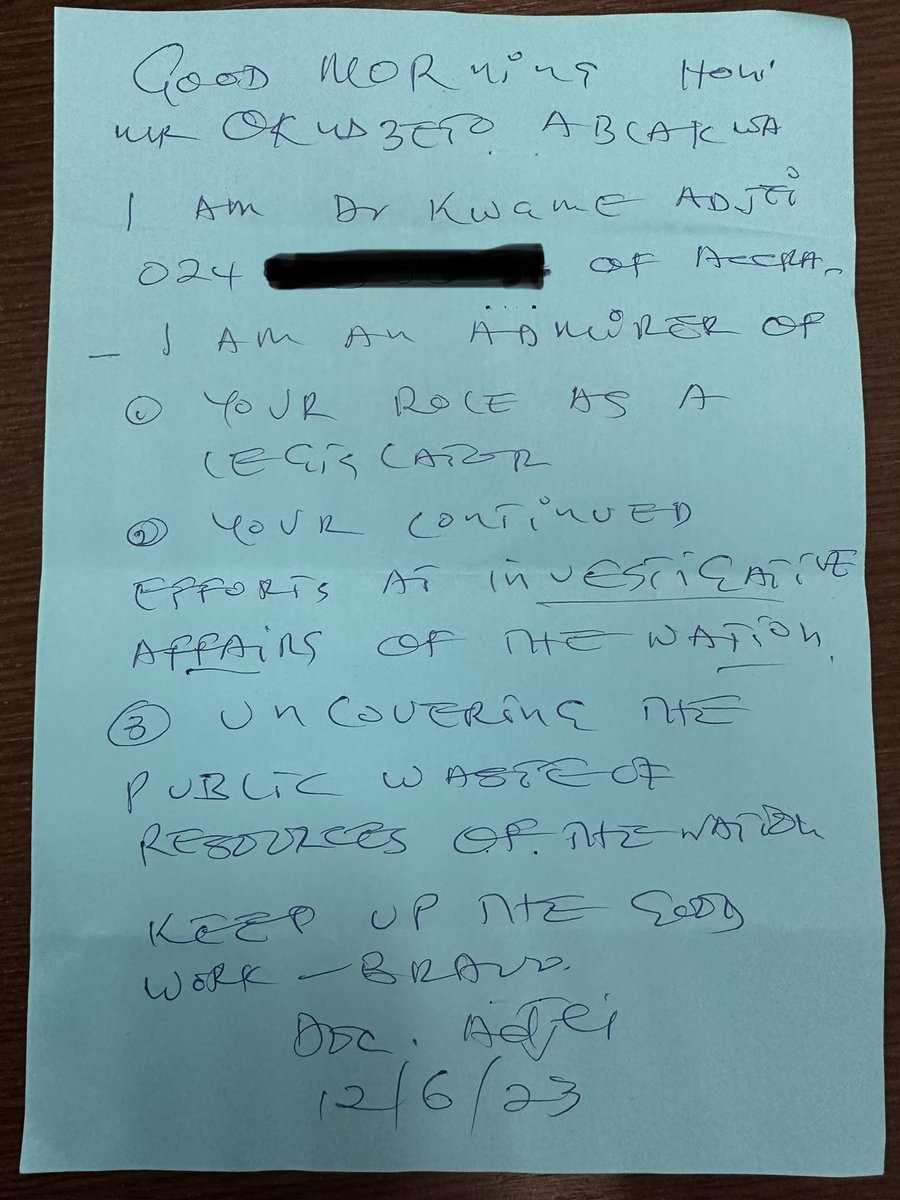 GOOD MORNING HON'
MR OKUDZETO ABLAKWA
I AM Dr KWAME ADJEI
024 OF ACCRA.
- I AM AN ADMIRER OF
① YOUR ROLE AS A
LEGISLATOR
② YOUR CONTINUED
EFFORTS AT INVESTIGATIVE
AFFAIRS OF THE NATION.
③ UNCOVERING THE
PUBLIC WASTE OF
RESOURCES OF THE NATION
KEEP UP THE GOOD
WORK - BRAVO.
DOC. Adjei
12/6/23